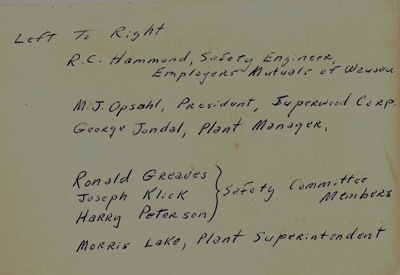 Left To Right
R.C. Hammond, Safety Engineer,
Employers Mutuals of Wausau
M.J. Opsahl, President, Superwood Corp.
George Jondal, Plant Manager,
Ronald Greaves
Joseph Klick } Safety Committee Members
Harry Peterson
Morris Lake, Plant Superintendent